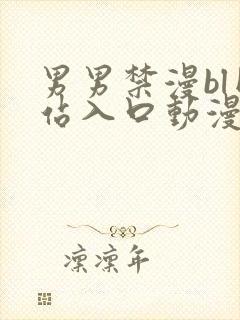 男男禁漫bl
佔入口動漫
凜凜年